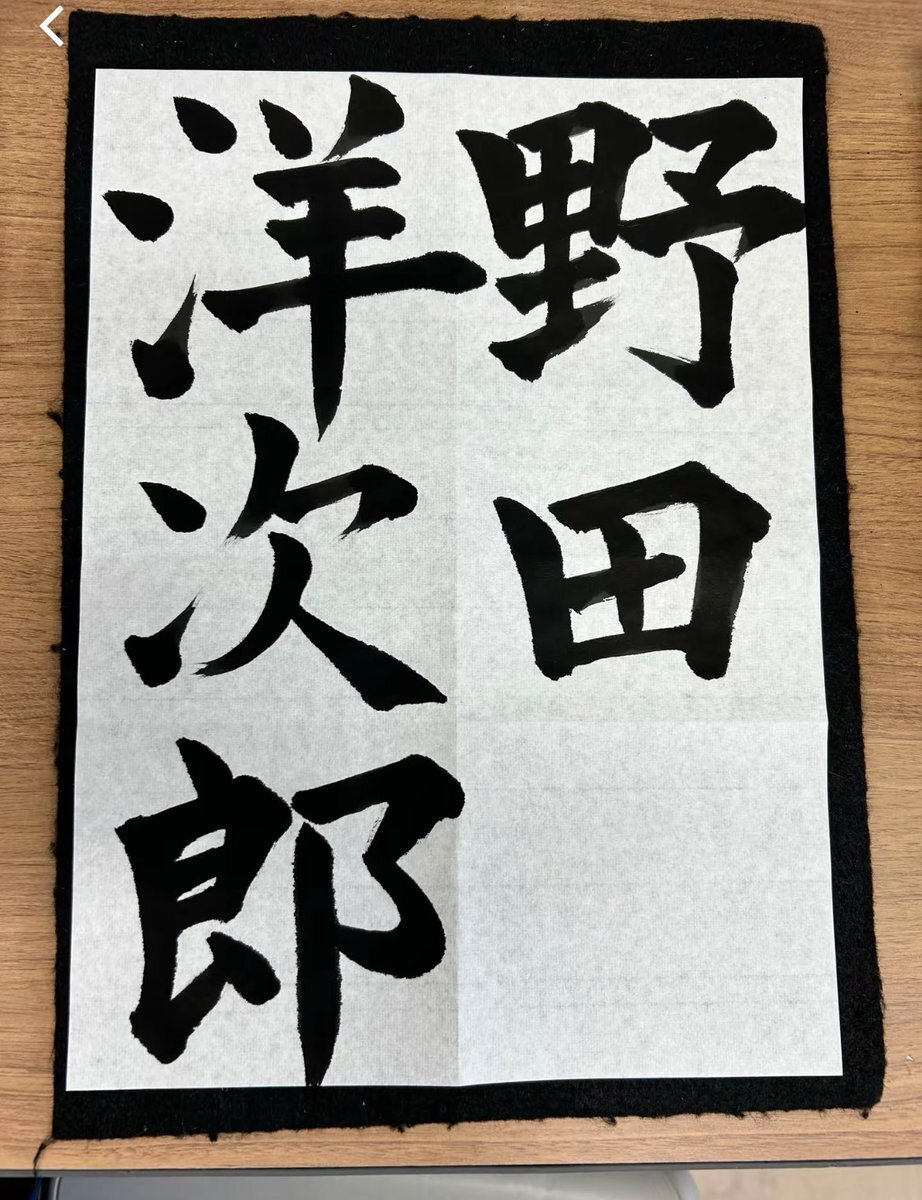 野田
洋次郎